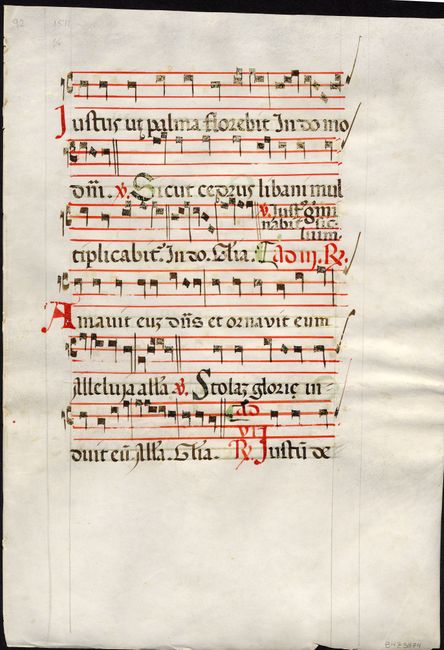 92 1511
Justus ut palma florebit In do mo
dm̄. ℣. Sicut cedrus libani mul
℣. Just9 g̃mi
nabit sic
lilium
tiplicabit. In do. Gl̃ia. Ad iij. ℟.
Amavit eu3 dñs et ornavit eum
Alleluja all̃a. ℣. Stola3 glorię in-
ad
duit eũ All̃a. Gl̃ia. VI ℟. Justũ de